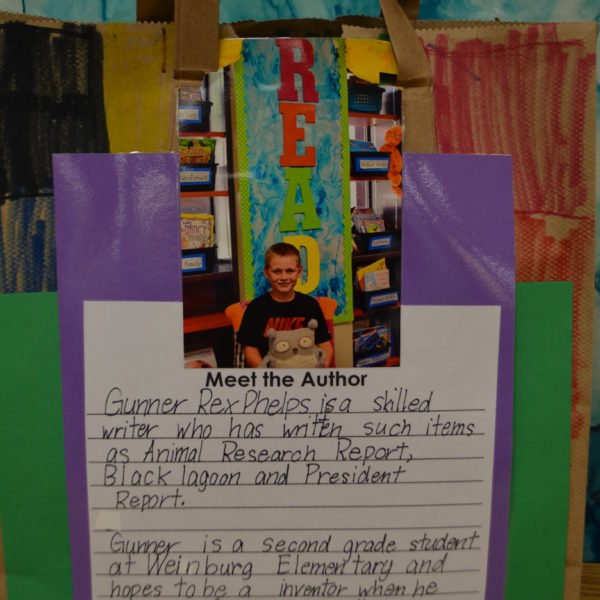 READ
NIKE
Meet the Author
Gunner Rex Phelps is a skilled
writer who has written such items
as Animal Research Report,
Black lagoon and President
Report.
Gunner is a second grade student
at Weinburg Elementary and
hopes to be a inventor when he